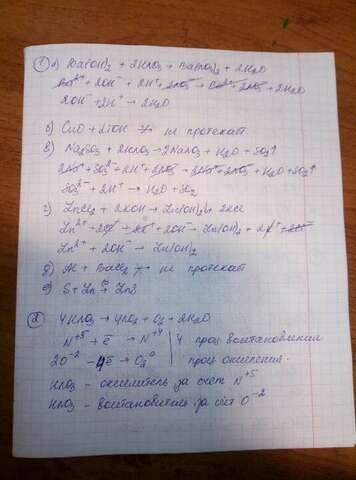 ① а) Ba(OH)₂ + 2HNO₃ → Ba(NO₃)₂ + 2H₂O
Ba²⁺ + 2OH⁻ + 2H⁺ + 2NO₃⁻ → Ba²⁺ + 2NO₃⁻ + 2H₂O
2OH⁻ + 2H⁺ → 2H₂O
б) CuO + KOH ↛ не протекает
в) Na₂SO₃ + 2HNO₃ → 2NaNO₃ + H₂O + SO₂↑
2Na⁺ + SO₃²⁻ + 2H⁺ + 2NO₃⁻ → 2Na⁺ + 2NO₃⁻ + H₂O + SO₂↑
SO₃²⁻ + 2H⁺ → H₂O + SO₂
г) ZnCl₂ + 2KOH → Zn(OH)₂↓ + 2KCl
Zn²⁺ + 2Cl⁻ + 2K⁺ + 2OH⁻ → Zn(OH)₂ + 2K⁺ + 2Cl⁻
Zn²⁺ + 2OH⁻ → Zn(OH)₂
д) + BaCl₂ ↛ не протекает
е) S + Zn → ZnS
② 4HNO₃ → 4NO₂ + O₂ + 2H₂O
N⁺⁵ + ē → N⁺⁴ | 4 проц восстановления
2O⁻² − 4ē → O₂⁰ | проц окисления.
HNO₃ – окислитель за счёт N⁺⁵
HNO₃ – восстановитель за счёт O⁻²